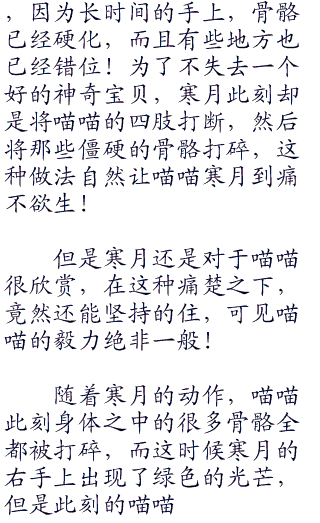 ，因为长时间的手上，骨骼
已经硬化，而且有些地方也
已经错位！为了不失去一个
好的神奇宝贝，寒月此刻却
是将喵喵的四肢打断，然后
将那些僵硬的骨骼打碎，这
种做法自然让喵喵寒月到痛
不欲生！
但是寒月还是对于喵喵
很欣赏，在这种痛楚之下，
竟然还能坚持的住，可见喵
喵的毅力绝非一般！
随着寒月的动作，喵喵
此刻身体之中的很多骨骼全
都被打碎，而这时候寒月的
右手上出现了绿色的光芒，
但是此刻的喵喵